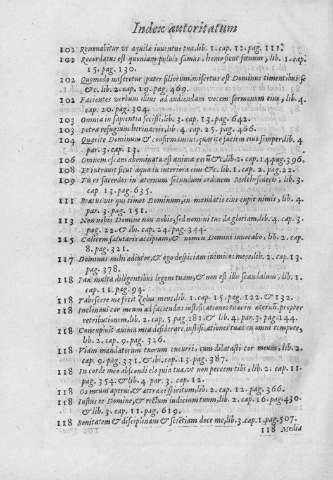 Index autoritatum
102 Renouabitur vt aquilæ iuuentus tua, lib. 1. cap. 12. pag. 111.
102 Recordatus est quoniam puluis sumus, homo sicut fœnum, lib. 1. cap.
15. pag. 130.
102 Quomodo miseretur pater filiorum misertus est Dominus timentibus se
&c. lib. 2. cap. 19. pag. 469.
102 Facientes verbum illius ad audiendam vocem sermonum eius, lib. 4.
cap. 20. pag. 304.
103 Omnia in sapientia fecisti. lib. 3. cap. 13. pag. 642.
103 petra refugium herinaceis, lib. 4. cap. 25. pag. 466.
104 Quærite Dominum & confirmamini, quærite faciem eius semper, lib. 4
par. 3. cap. 13.
106 Omnem escam abominata est anima eorū &c. lib. 2. cap. 14. pag. 396.
108 Et intrauit sicut aqua in interiora eius &c. lib. 1. cap. 2. pag. 22.
109 Tu es sacerdos in æternum secundum ordinem Melchisedech, lib. 3.
cap. 13. pag. 635.
111 Beatus vir qui timet Dominum, in mandatis eius cupit nimis, lib. 4
par. 3. pag. 151.
113 Non nobis Domine non nobis, sed nomini tuo da gloriam, lib. 4. cap. 3.
pag. 22. & ibi. cap. 24. pag. 344.
115 Calicem salutaris accipiam, & nomen Domini inuocabo, lib. 2. cap.
8. pag. 321.
117 Dominus mihi adiutor, & ego despiciam inimicos meos, lib. 2. cap. 13.
pag. 378.
118 Pax multa diligentibus legem tuam, & non est illis scandalum, lib. 1.
cap. 11. pag. 94.
118 Tabescere me fecit Zelus meus, lib. 1. cap. 15. pag. 122. & 132.
118 Inclinaui cor meum ad faciendas iustificationes tuas in æternum, propter
retributionem, lib. 2. cap. 5. pag. 281. & lib. 4. par. 3. pag. 144.
118 Concupiuit anima mea desiderare iustificationes tuas in omni tempore,
lib. 2. cap. 9. pag. 326.
118 Viam mandatorum tuorum cucurri, cum dilatasti cor meum, lib. 2.
cap. 9. pag. 331. & ibi. cap. 13. pag. 387.
118 In corde meo abscondi eloquia tua, vt non peccem tibi, lib. 2. cap. 11.
pag. 354. & lib. 4 par. 3. cap. 12.
118 Os meum aperui, & attraxi spiritum, lib. 2. cap. 12. pag. 366.
118 Iustus es Domine, & rectum iudicium tuum, lib. 2. cap. 16. pag. 430.
& lib. 3. cap. 11. pag. 619.
118 Bonitatem & disciplinam & scientiam doce me, lib. 3. cap. 1. pag. 507.
118 Media